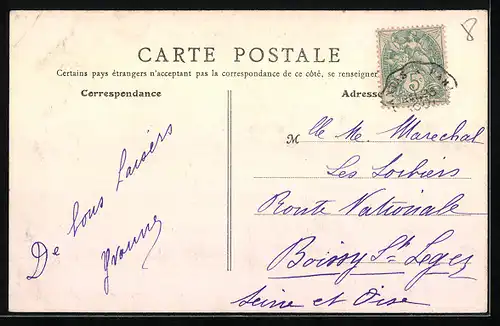 8
CARTE POSTALE
Certains pays étrangers n'acceptant pas la correspondance de ce côté, se renseigner
Correspondance
Adresse
5
De bons baisers
Yvonne
M lle M. Marechal
Les Lorbiers
Route Nationale
Boissy St Leger
Seine et Oise